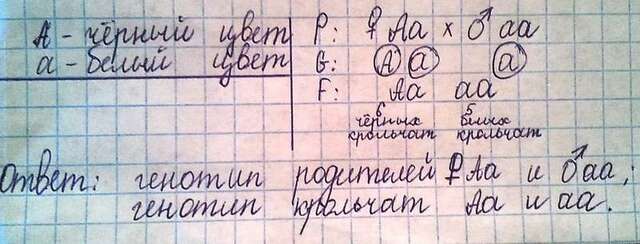 A - чёрный цвет
a - белый цвет
P: ♀ Aa x ♂ aa
G: A a a
F: Aa aa
6 чёрных крольчат
5 белых крольчат
Ответ: генотип родителей ♀ Aa и ♂ aa;
генотип крольчат Aa и aa.